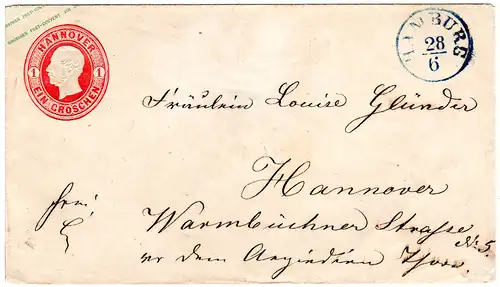 HANNOVER
1 1
EIN GROSCHEN
HAMBURG
28
6
Fräulein Louise Glünder
Hannover
frei
Warmbüchner Strasse
No. 5.
vor dem Aegidien Thore.